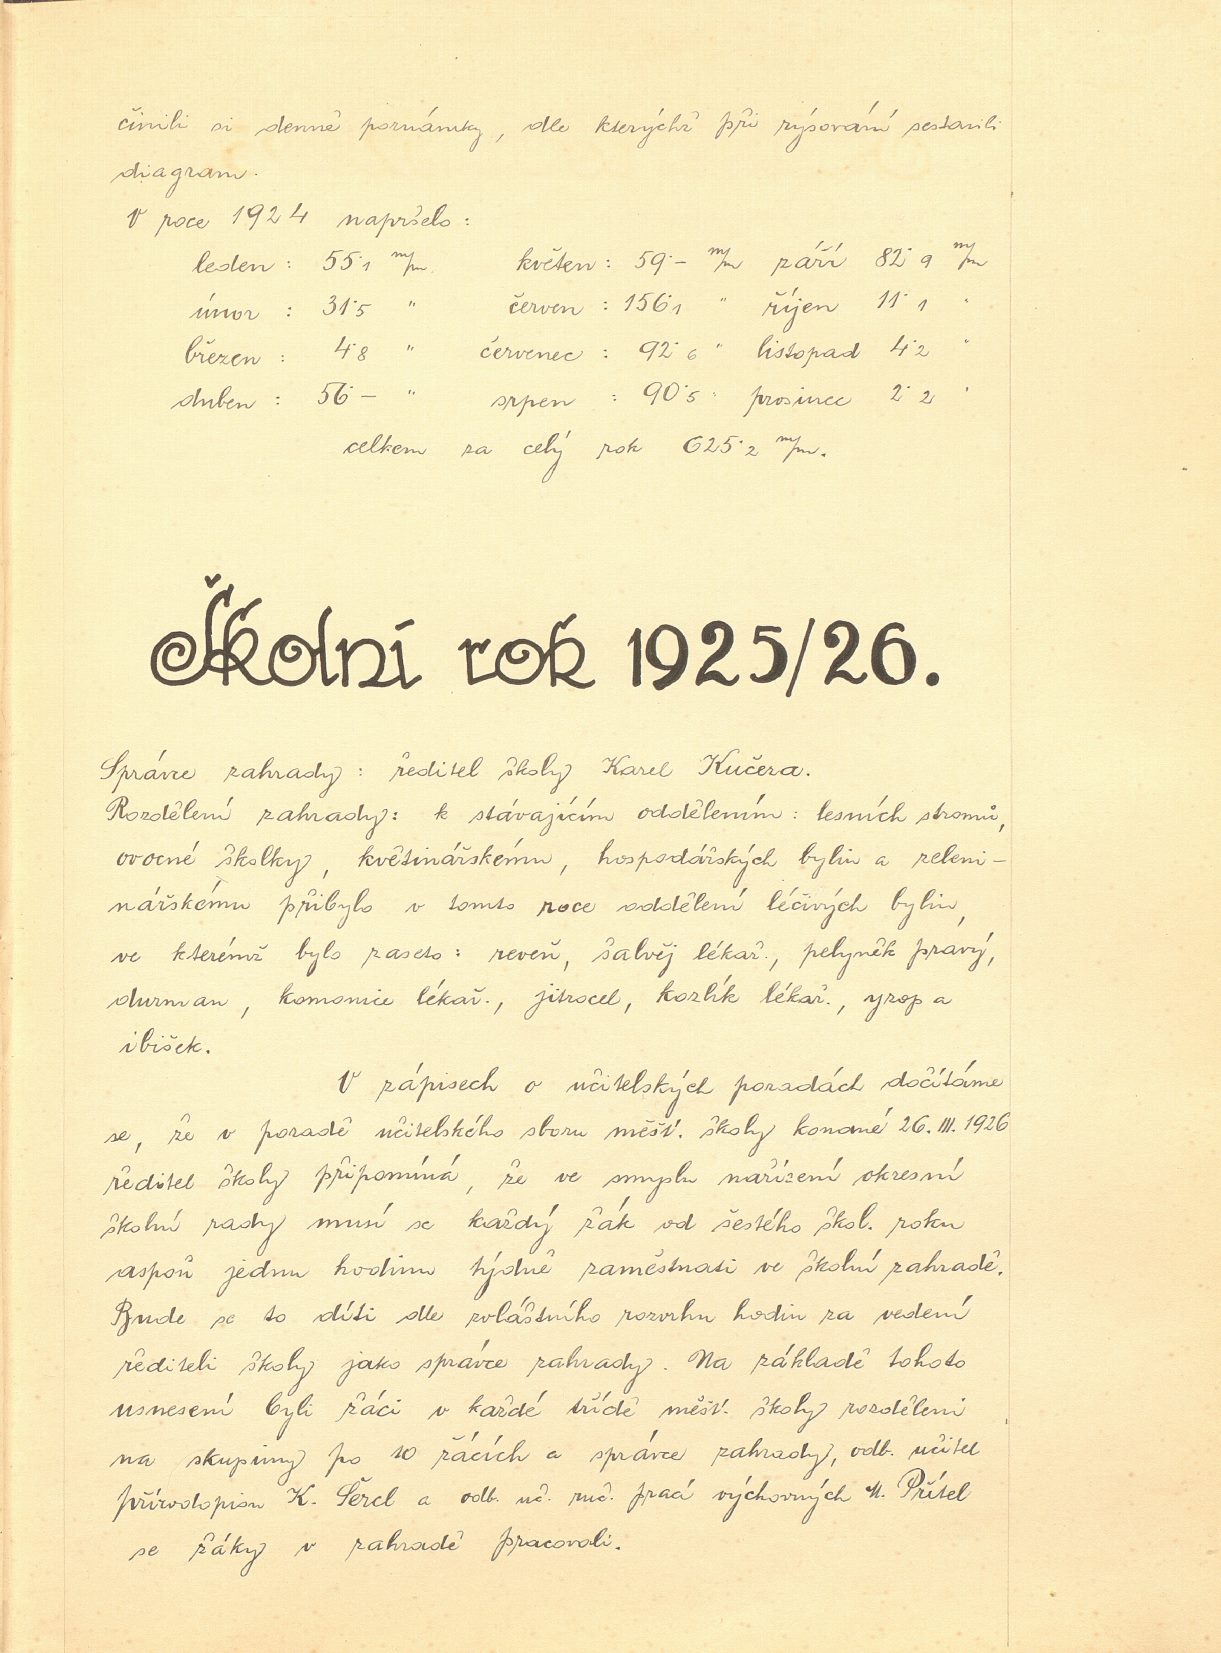 činili si denně poznámky, dle kterýchž při rýsování sestavili
diagram.
V roce 1924 napršelo:
leden : 55·1 m/m květen : 59·– m/m září 82·9 m/m
únor : 31·5 " červen : 156·1 " říjen 11·1 "
březen : 4·8 " červenec : 92·6 " listopad 4·2 "
duben : 56·– " srpen : 90·5 " prosinec 2·2 "
celkem za celý rok 625·2 m/m.
Školní rok 1925/26.
Správce zahrady : ředitel školy Karel Kučera.
Rozdělení zahrady: k stávajícím oddělením : lesních stromů,
ovocné školky, květinářskému, hospodářských bylin a zeleni-
nářskému přibylo v tomto roce oddělení léčivých bylin,
ve kterémž bylo zaseto: reveň, šalvěj lékař., pelyněk pravý,
durman, komonice lékař., jitrocel, kozlík lékař., yzop a
ibišek.
V zápisech o učitelských poradách dočítáme
se, že v poradě učitelského sboru měšť. školy konané 26. III. 1926
ředitel školy připomíná, že ve smyslu nařízení okresní
školní rady musí se každý žák od šestého škol. roku
aspoň jednu hodinu týdně zaměstnati ve školní zahradě.
Bude se to díti dle zvláštního rozvrhu hodin za vedení
řediteli školy jako správce zahrady. Na základě tohoto
usnesení byli žáci v každé třídě měšť. školy rozděleni
na skupiny po 10 žácích a správce zahrady, odb. učitel
přírodopisu K. Šercl a odb. uč. ruč. prací výchovných M. Přítel
se žáky v zahradě pracovali.